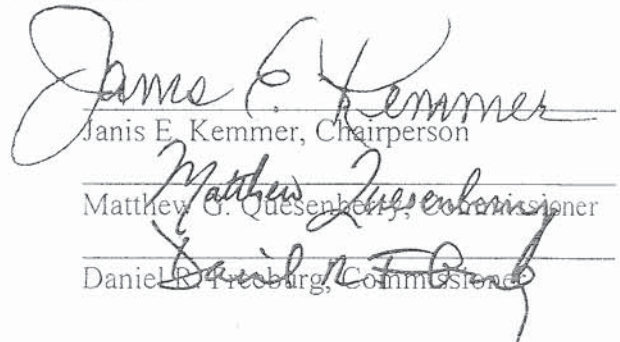 Janis E. Kemmer
Janis E. Kemmer, Chairperson
Matthew Quesenberry
Matthew G. Quesenberry, Commissioner
Daniel R. Freeburg
Daniel R. Freeburg, Commissioner